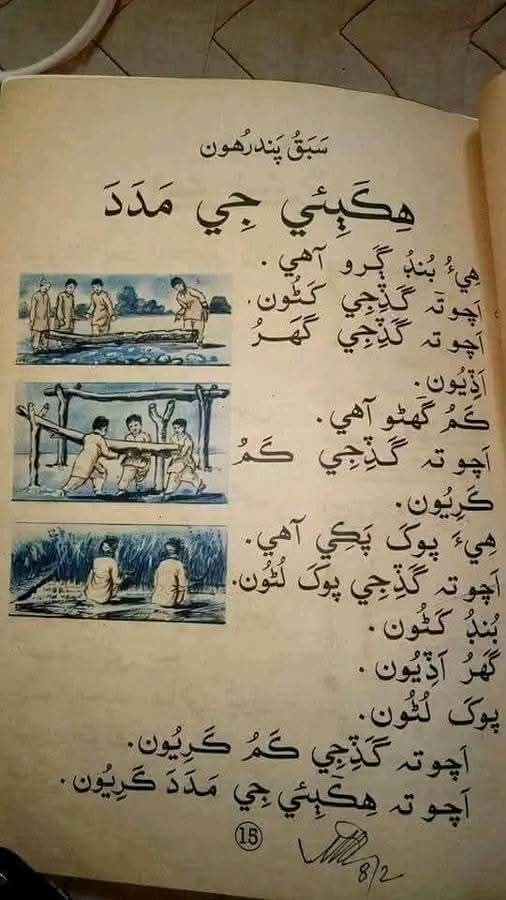 سَبَقُ پَندرَهون
هِڪَٻِئي جِي مَدَدَ
هِيءُ بُنڊُ ڳَرو آهي.
اَچو تہ گَڏِجي کَڻُون.
اَچو تہ گَڏِجي گَھَرُ
اَڏِيُون.
ڪَمُ گَھڻو آهي.
اَچو تہ گَڏِجي ڪَمُ
ڪَرِيُون.
هِيءَ پوکَ پَڪِي آهي.
اَچو تہ گَڏِجي پوکَ لُڻُون.
بُنڊُ کَڻُون.
گَھَرُ اَڏِيُون.
پوکَ لُڻُون.
اَچو تہ گَڏِجي ڪَمُ ڪَرِيُون.
اَچو تہ هِڪَٻِئي جِي مَدَدَ ڪَرِيُون.
15
8/2